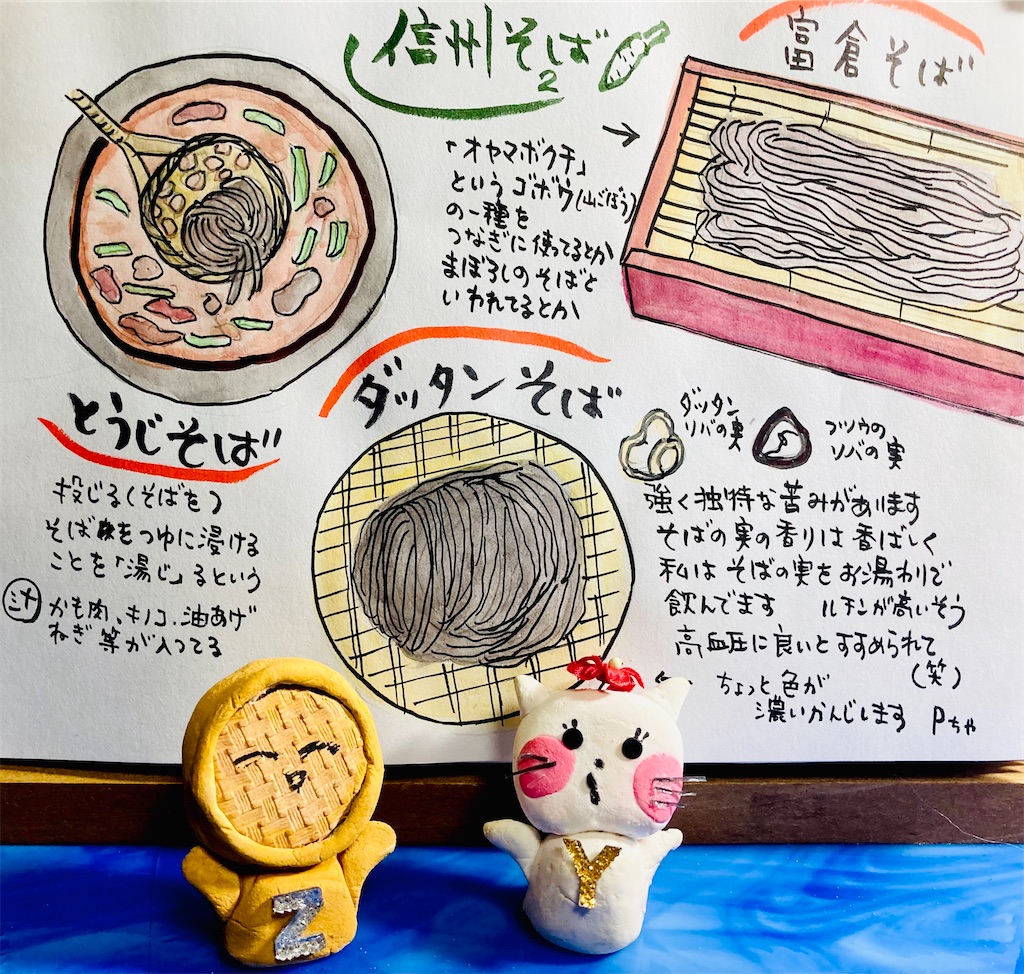 信州そば
2
富倉そば
「オヤマボクチ」
というゴボウ(山ごぼう)
の一種を
つなぎに使ってるとか
まぼろしのそばと
いわれてるとか
とうじそば
投じる(そばを)
そばをつゆに浸ける
ことを「湯じ」るという
汁
かも肉、キノコ、油あげ
ねぎ等が入ってる
ダッタンそば
ダッタン
ソバの実
フツウの
ソバの実
強く独特な苦みがあります
そばの実の香りは香ばしく
私はそばの実をお湯わりで
飲んでます ルチンが高いそう
高血圧に良いとすすめられて
(笑)
ちょっと色が
濃いかんじします Pちゃ
Z
Y